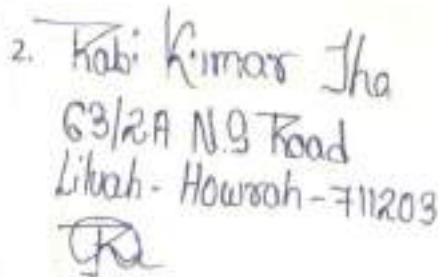 2. Rabi Kumar Jha
63/2A N.S Road
Liluah - Howrah - 711203